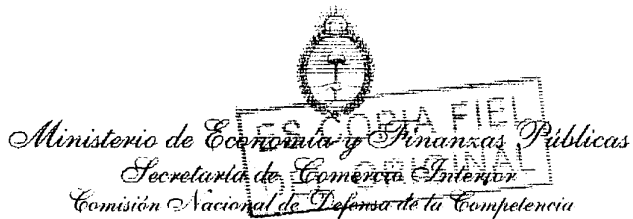 Ministerio de Economía y Finanzas Públicas
Secretaría de Comercio Interior
Comisión Nacional de Defensa de la Competencia
ES COPIA FIEL
DEL ORIGINAL